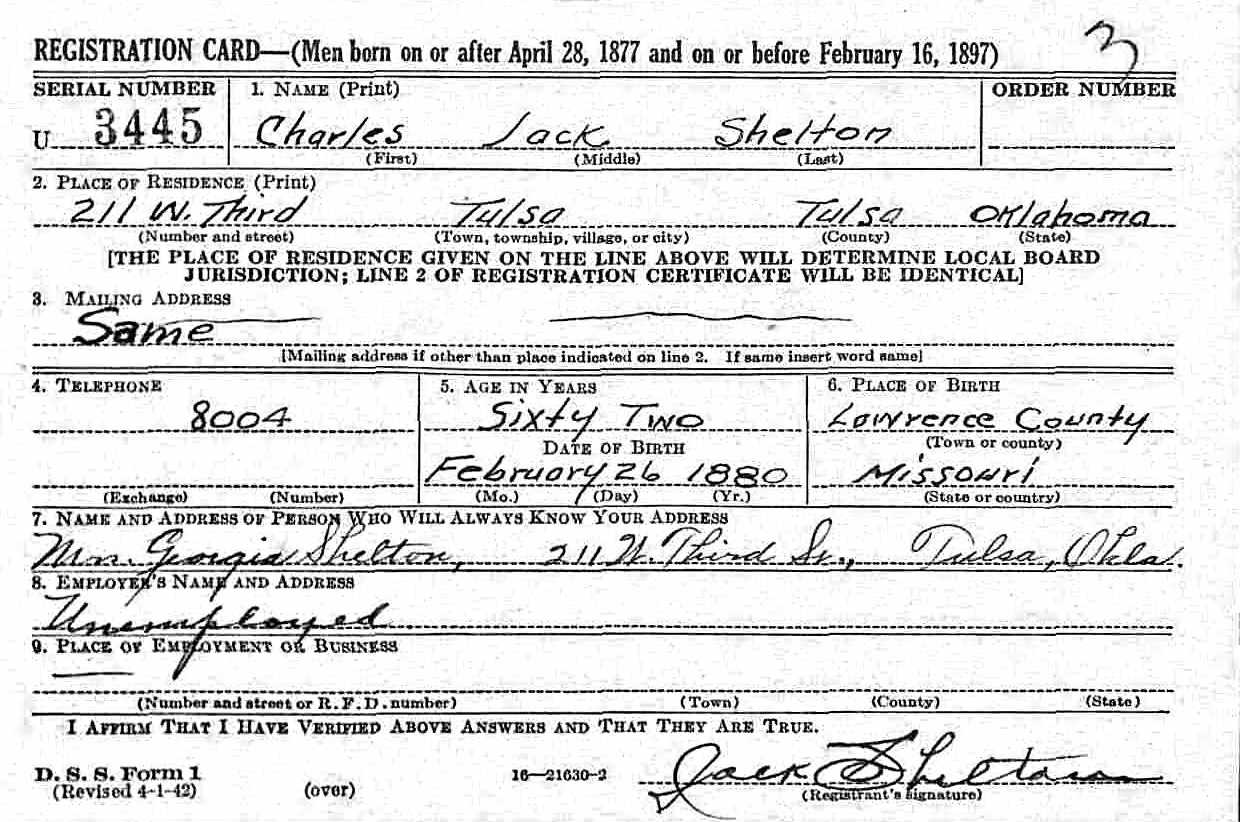 3
REGISTRATION CARD—(Men born on or after April 28, 1877 and on or before February 16, 1897)
SERIAL NUMBER 1. NAME (Print) ORDER NUMBER
U 3445 Charles Jack Shelton
(First) (Middle) (Last)
2. PLACE OF RESIDENCE (Print)
211 W. Third Tulsa Tulsa Oklahoma
(Number and street) (Town, township, village, or city) (County) (State)
[THE PLACE OF RESIDENCE GIVEN ON THE LINE ABOVE WILL DETERMINE LOCAL BOARD
JURISDICTION; LINE 2 OF REGISTRATION CERTIFICATE WILL BE IDENTICAL]
3. MAILING ADDRESS
Same
[Mailing address if other than place indicated on line 2. If same insert word same]
4. TELEPHONE 5. AGE IN YEARS 6. PLACE OF BIRTH
8004 Sixty Two Lawrence County
DATE OF BIRTH (Town or county)
February 26 1880 Missouri
(Exchange) (Number) (Mo.) (Day) (Yr.) (State or country)
7. NAME AND ADDRESS OF PERSON WHO WILL ALWAYS KNOW YOUR ADDRESS
Mrs. Georgia Shelton, 211 W. Third St., Tulsa, Okla.
8. EMPLOYER'S NAME AND ADDRESS
Unemployed
9. PLACE OF EMPLOYMENT OR BUSINESS
(Number and street or R. F. D. number) (Town) (County) (State)
I AFFIRM THAT I HAVE VERIFIED ABOVE ANSWERS AND THAT THEY ARE TRUE.
D. S. S. Form 1 16—21630-2 Jack Shelton
(Revised 4-1-42) (over) (Registrant's signature)